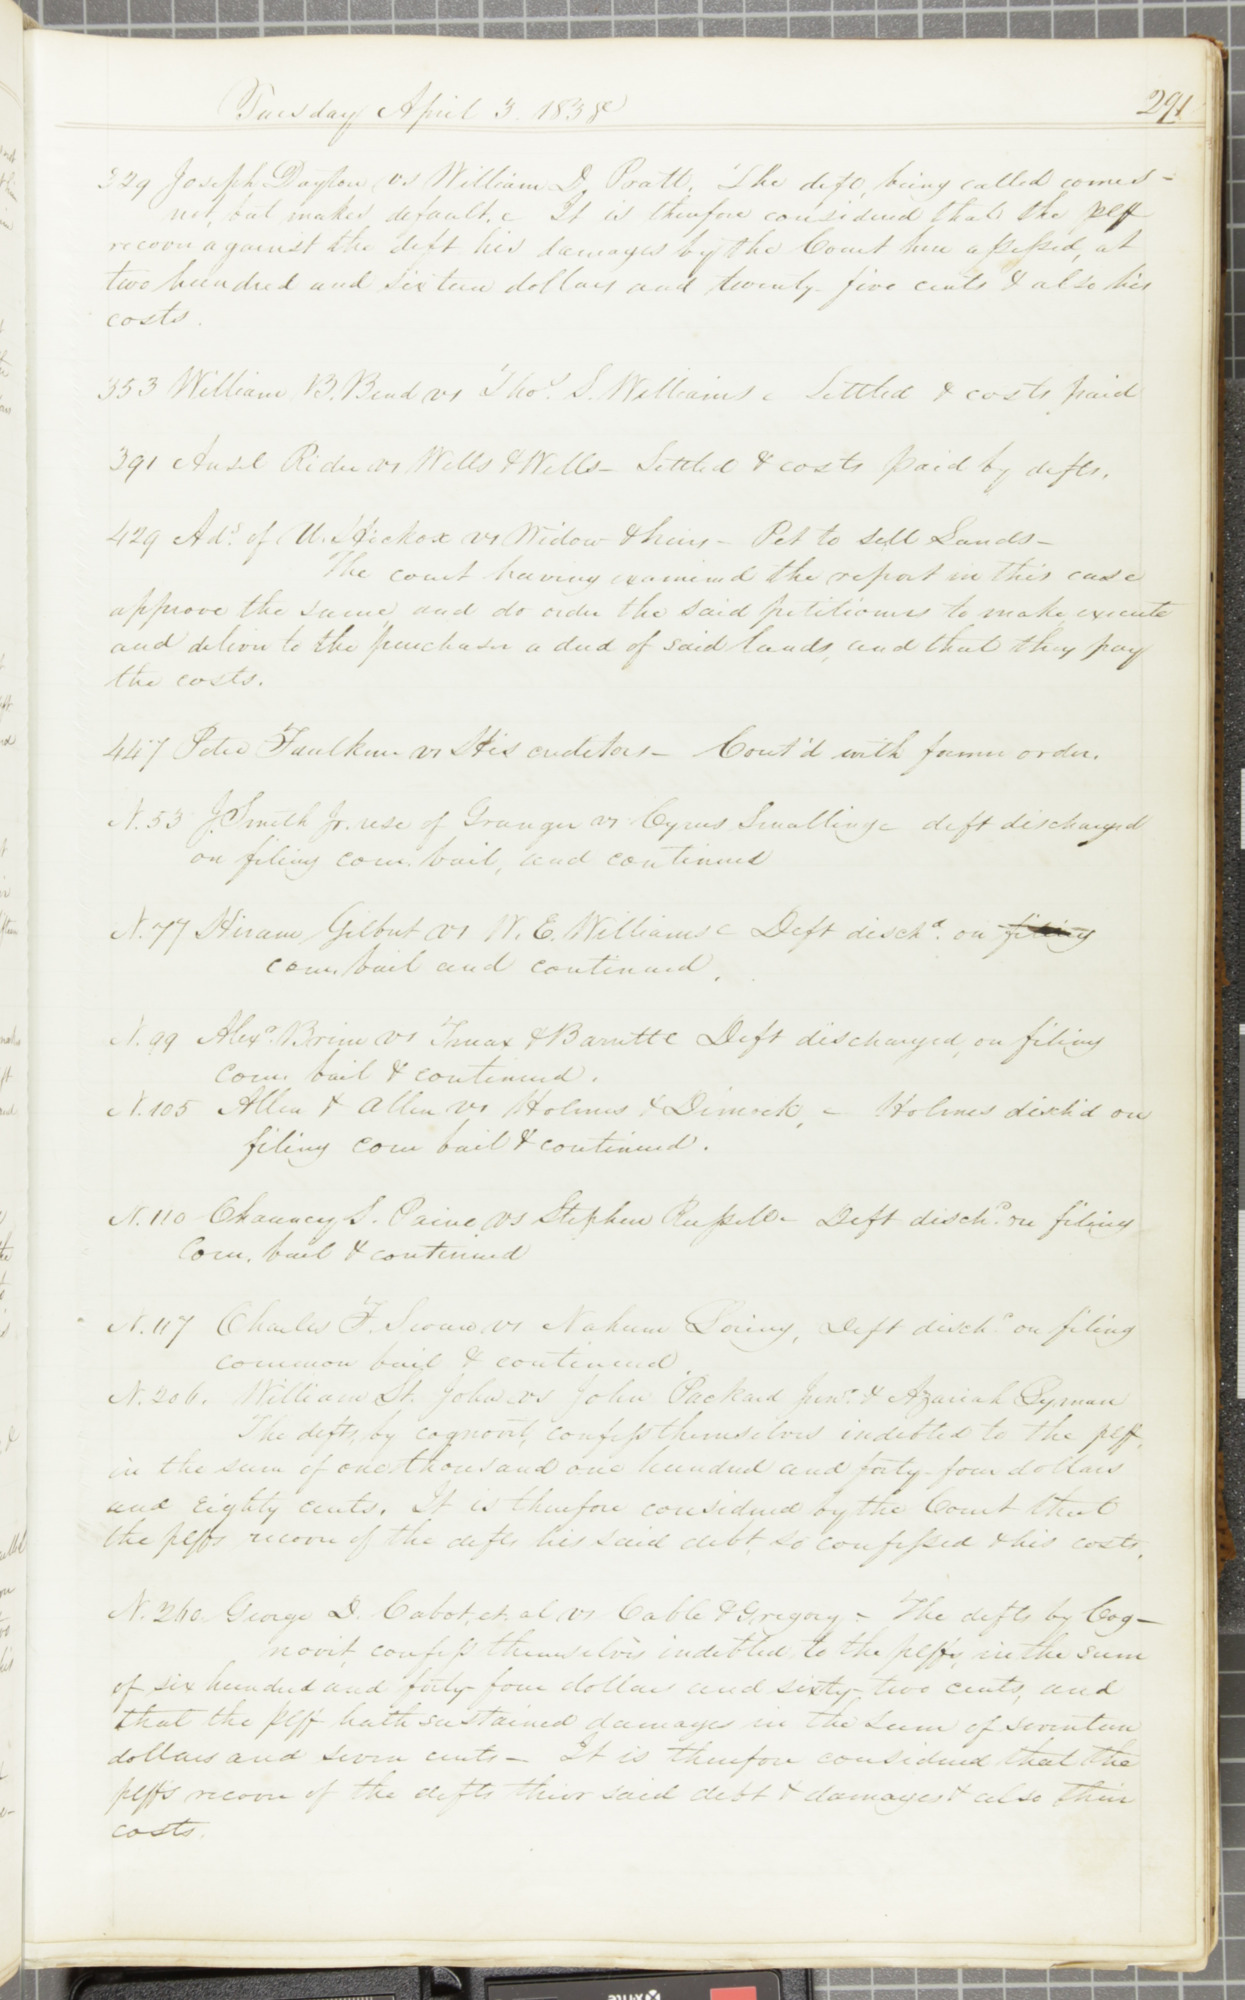 Tuesday April 3. 1838
291
329 Joseph Dayton vs William D. Pratt. The deft, being called comes
not, but makes default. It is therefore considered that the plff
recover against the deft his damages by the Court here assessed, at
two hundred and sixteen dollars and twenty-five cents & also his
costs.
353 William B. Bend vs Thos. S. Williams Settled & costs paid
391 Ansel Rider vs Wells & Wells - Settled & costs paid by defts.
429 Ads. of U. Hickox vs Widow & heirs - Pet to sell Lands -
The court having examined the report in this case
approve the same, and do order the said petitioners to make execute
and deliver to the purchaser a deed of said lands, and that they pay
the costs.
447 Peter Faulkner vs His creditors - Cont'd with former order.
N. 53 J. Smith Jr. use of Granger vs Cyrus Smalling - deft discharged
on filing com. bail, and continued
N. 77 Hiram Gilbert vs W. E. Williams Deft dischd. on filing
com. bail and continued.
N. 99 Alexr. Brim vs Truax & Barrett Deft discharged, on filing
com. bail & continued.
N. 105 Allen & Allen vs Holmes & Dimock, - Holmes disch'd on
filing com bail & continued.
N. 110 Chauncey S. Paine vs Stephen Russell - Deft dischd. on filing
Com. bail & continued
N. 117 Charles F. Swan vs Nahum Loring, Deft dischd. on filing
common bail & continued.
N. 206. William St. John vs John Packard Junr. & Azariah Lyman
The defts, by cognovit, confess themselves indebted to the plff,
in the sum of one thousand one hundred and forty-four dollars
and eighty cents. It is therefore considered by the Court that
the plffs recover of the defts his said debt, so confessed & his costs.
N. 260. George D. Cabot, et. al vs Cable & Gregory - The defts by Cog-
novit, confess themselves indebted to the plffs, in the sum
of six hundred and forty four dollars and sixty-two cents, and
that the plff hath sustained damages in the sum of seventeen
dollars and seven cents - It is therefore considered that the
plffs recover of the defts their said debt & damages & also their
costs.